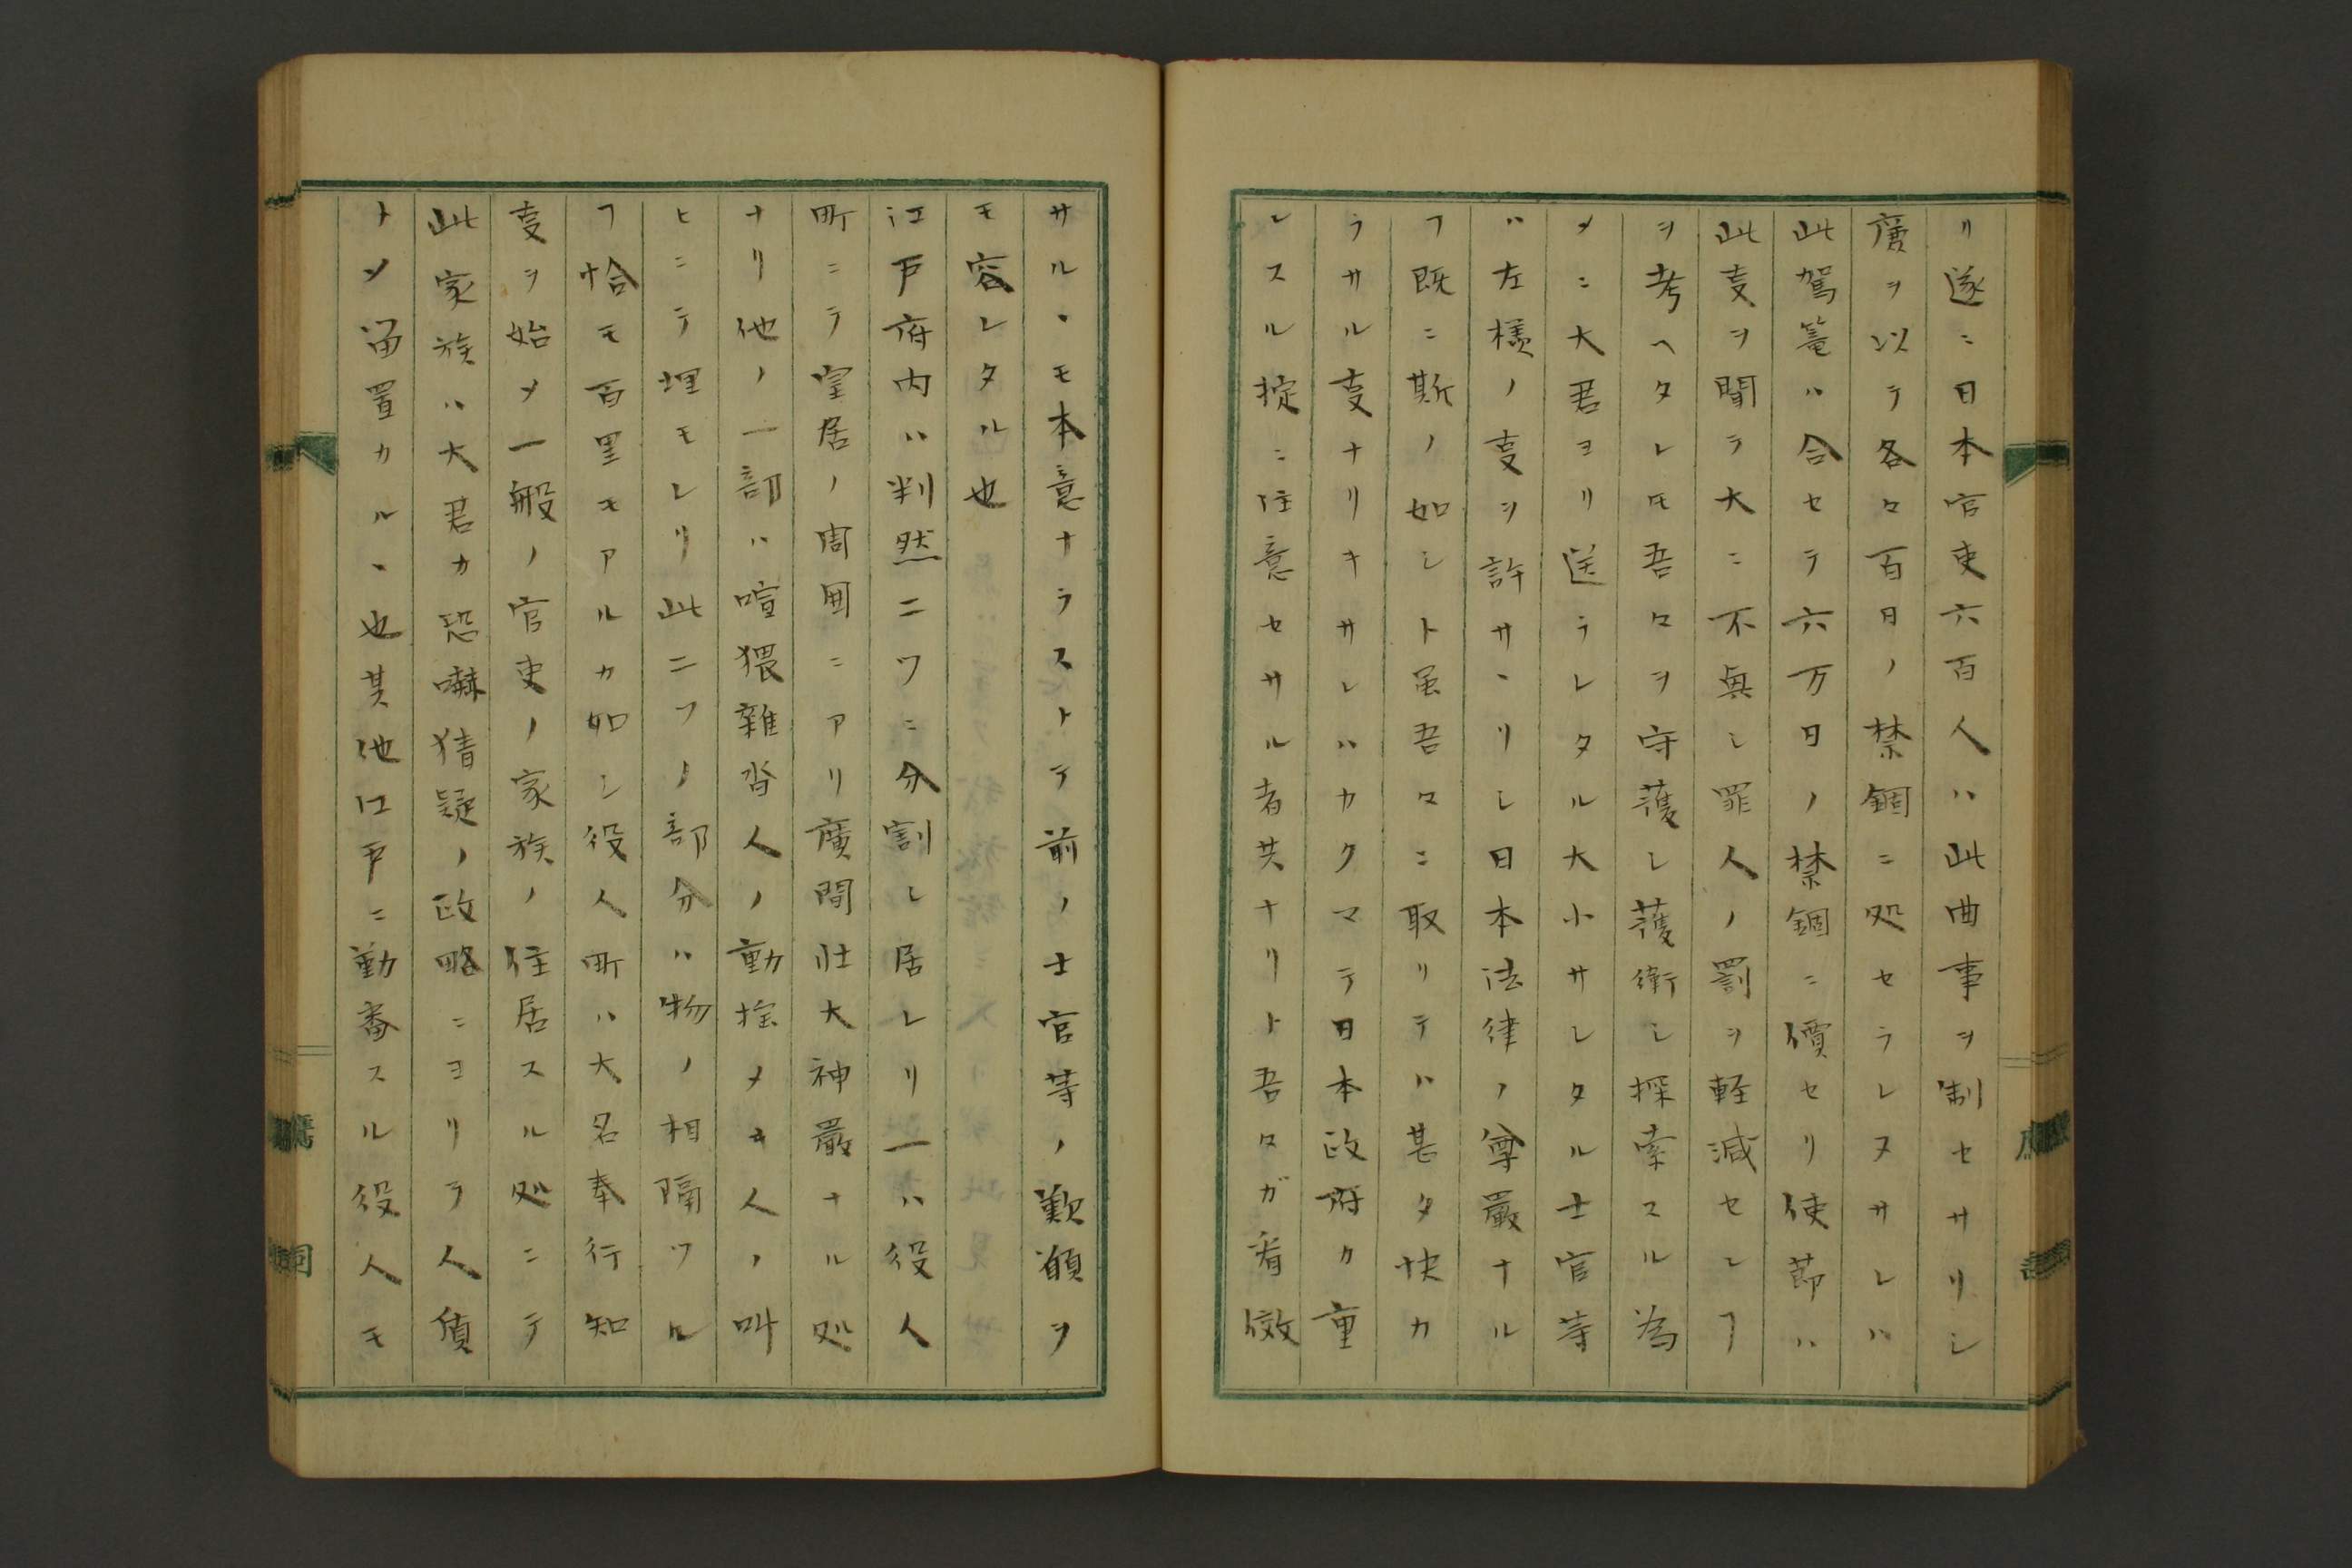 リ遂ニ日本官吏六百人ハ此曲事ヲ制セサリシ
廣ヲ以テ各々百日ノ禁錮ニ処セラレヌサレハ
此駕篭ハ合セテ六万日ノ禁錮ニ價セリ使節ハ
此㕝ヲ聞テ大ニ不興シ罪人ノ罰ヲ軽減セシヿ
ヲ考ヘタレ𪜈吾々ヲ守護シ護衛シ探索スル為
メニ大君ヨリ送ラレタル大小サシタル士官等
ハ左様ノ㕝ヲ許サヽリシ日本法律ノ尊嚴ナル
ヿ既ニ斯ノ如シト虽吾々ニ取リテハ甚タ快カ
ラサル㕝ナリキサレハカクマテ日本政府カ重
シスル掟ニ注意セサル者共ナリト吾々ガ看傚
サルヽモ本意ナラストテ前ノ士官等ノ歎願ヲ
モ容レタル也
江戸府内ハ判然二ツニ分割シ居レリ一ハ役人
町ニテ室居ノ周囲ニアリ廣間壮大神嚴ナル処
ナリ他ノ一部ハ喧猥雜沓人ノ動揺メキ人ノ叫
ヒニテ埋モレリ此二ツノ部分ハ物ノ相隔ツル
ヿ恰モ百里モアルカ如シ役人町ハ大名奉行知
㕝ヲ始メ一般ノ官吏ノ家族ノ住居スル処ニテ
此家族ハ大君カ恐嚇猜疑ノ政略ニヨリテ人質
トメ留置カルヽ也其他江戸ニ勤番スル役人モ